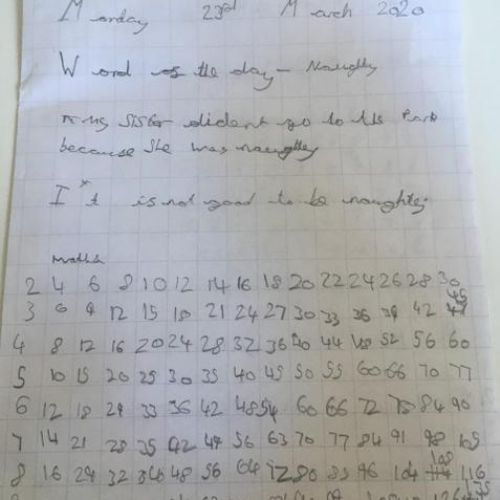 Monday 23rd March 2020
Word of the day - Naughty
my sister dident go to the Park
because she was naughty
It is not good to be naughty.
maths
2 4 6 8 10 12 14 16 18 20 22 24 26 28 30
3 6 9 12 15 18 21 24 27 30 33 36 39 42 45
4 8 12 16 20 24 28 32 36 40 44 48 52 56 60
5 10 15 20 25 30 35 40 45 50 55 60 66 70 77
6 12 18 24 33 36 42 48 54 60 66 72 78 84 90
7 14 21 28 35 42 49 56 63 70 77 84 91 98 105
8 16 24 32 40 48 56 64 72 80 88 96 104 108 116